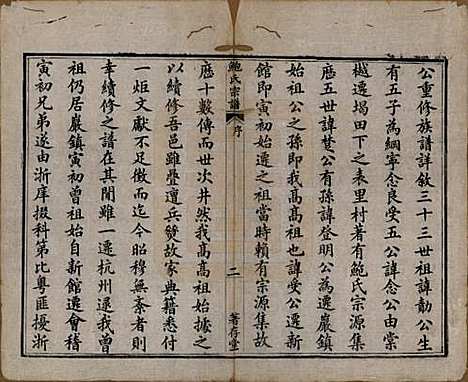 公重修族譜詳敘三十三世祖諱勳公生
有五子為綱寧念良受五公諱念公由棠
樾遷堨田下之表里村著有鮑氏宗源集
歷五世諱楚公有孫諱登明公為遷巖鎮
始祖公之孫即我高高祖也諱受公遷新
館即寅初始遷之祖當時賴有宗源集故
歷十數傳而世次井然我高高祖始據之
以續修吾邑雖疊遭兵燹故家典籍悉付
一炬文獻不足徵而迄今昭穆無紊者則
幸續修之譜在其間雖一遷杭州遷我曾
祖仍居巖鎮寅初曾祖始自新館遷會稽
寅初兄弟遂由浙庠掇科第比粵匪擾浙
鮑氏宗譜
序
二
著存堂